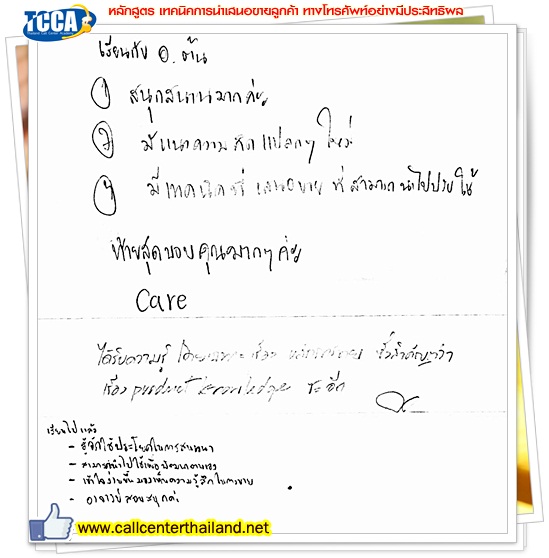 TCCA
Thailand Call Center Academy
หลักสูตร เทคนิคการนำเสนอขายลูกค้า ทางโทรศัพท์อย่างมีประสิทธิผล
เรียนกับ อ. อ้น
① สนุกสนานมากค่ะ
② มีแนวความคิดแปลกๆ ใหม่
มีเทคนิค เสนอขาย ที่สามารถนำไปประยุกต์ใช้
ท้ายสุดขอบคุณมากๆ ค่ะ
Care
ได้รับความรู้ โดยเฉพาะเรื่อง ซึ่งสำคัญกว่า
เรื่อง product knowledge ซะอีก
เรียนไปแล้ว
- รู้จักใช้ประโยคในการสนทนา
- สามารถนำไปใช้เพื่อพัฒนาตนเอง
- เข้าใจง่ายขึ้น มองเห็นความรู้สึกในการขาย
- อาจารย์สอนสนุกค่ะ
www.callcenterthailand.net